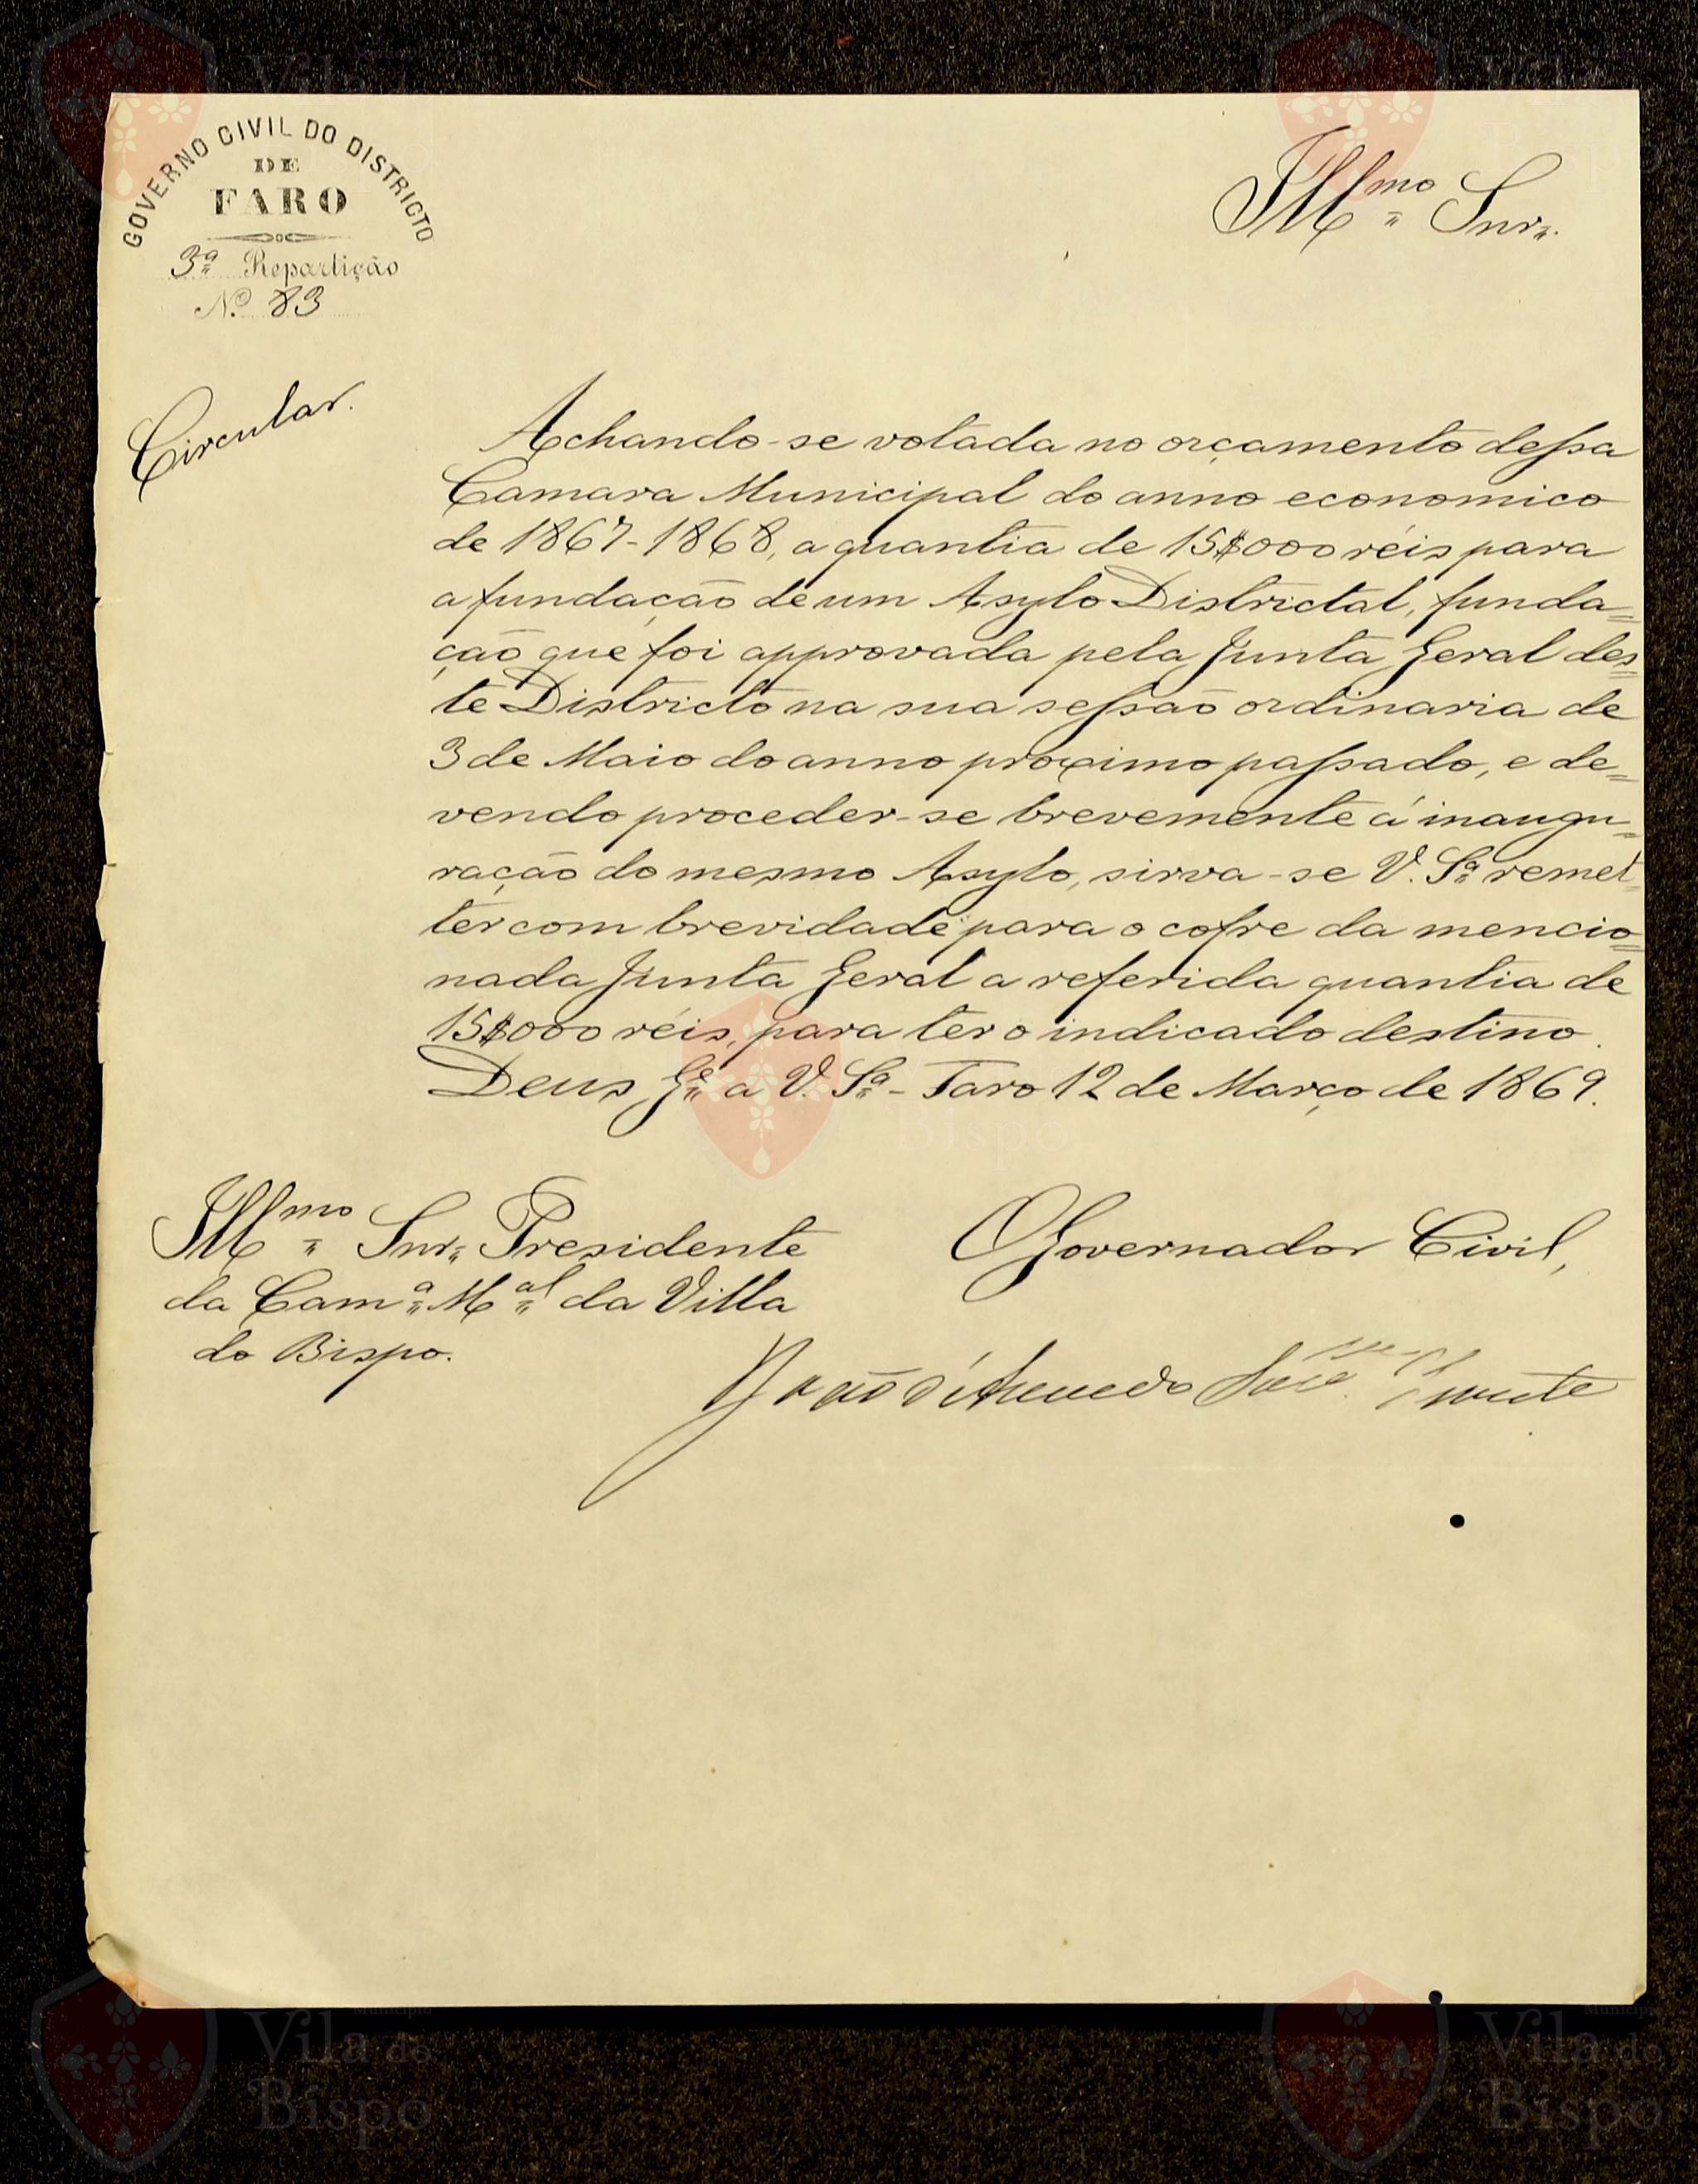 GOVERNO CIVIL DO DISTRICTO
DE
FARO
3ª Repartição
Nº 83
Illmo Snr.
Circular.
Achando-se votada no orçamento dessa
Camara Municipal do anno economico
de 1867-1868, a quantia de 15$000 réis para
a fundação de um Asylo Districtal, funda=
ção que foi approvada pela Junta Geral des=
te Districto na sua sessão ordinaria de
3 de Maio do anno proximo passado, e de=
vendo proceder-se brevemente á inaugu=
ração do mesmo Asylo, sirva-se V. Sª remet=
ter com brevidade para o cofre da mencio=
nada Junta Geral a referida quantia de
15$000 réis, para ter o indicado destino.
Deus Ge a V. Sª - Faro 12 de Março de 1869.
Illmo Snr. Presidente
da Camª Mal da Villa
do Bispo.
O Governador Civil,
Vila do
Bispo
Município
Vila do
Bispo
Município
Bispo